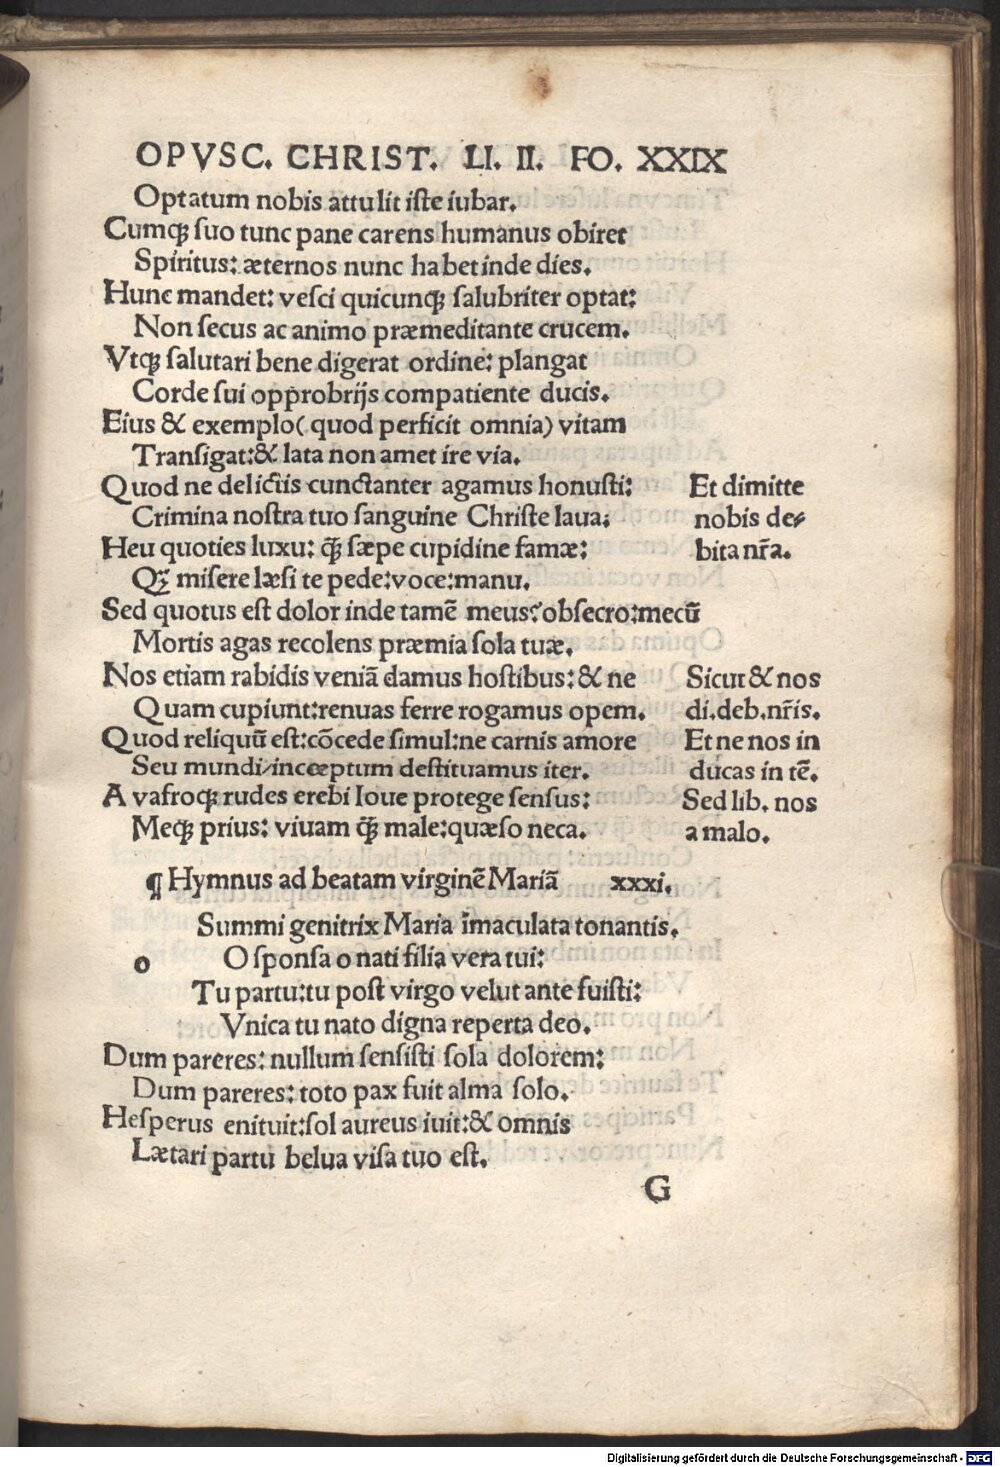 OPVSC. CHRIST. LI. II. FO. XXIX
Optatum nobis attulit iſte iubar.
Cumqꝫ ſuo tunc pane carens humanus obiret
Spiritus: æternos nunc habet inde dies.
Hunc mandet: veſci quicunqꝫ ſalubriter optat:
Non ſecus ac animo præmeditante crucem.
Vtqꝫ ſalutari bene digerat ordine: plangat
Corde ſui opprobrijs compatiente ducis.
Eius & exemplo (quod perficit omnia) vitam
Tranſigat: & lata non amet ire via.
Quod ne delictis cunctanter agamus honuſti: Et dimitte
Crimina noſtra tuo ſanguine Chriſte laua: nobis de⸗
Heu quoties luxu: q̄ꝫ ſæpe cupidine famæ: bita nr̃a.
Qꝫ miſere læſi te pede: voce: manu.
Sed quotus eſt dolor inde tamē meus? obſecro: mecū
Mortis agas recolens præmia ſola tuæ.
Nos etiam rabidis veniā damus hoſtibus: & ne Sicut & nos
Quam cupiunt: renuas ferre rogamus opem. di. deb. nr̃is.
Quod reliquū eſt: cōcede ſimul: ne carnis amore Et ne nos in
Seu mundi/inceptum deſtituamus iter. ducas in tē.
A vafroqꝫ rudes erebi Ioue protege ſenſus: Sed lib. nos
Meqꝫ prius: viuam q̄ꝫ male: quæſo neca. a malo.
¶ Hymnus ad beatam virginē Mariā xxxi.
Summi genitrix Maria īmaculata tonantis.
o O ſponſa o nati filia vera tui:
Tu partu: tu poſt virgo velut ante fuiſti:
Vnica tu nato digna reperta deo.
Dum pareres: nullum ſenſiſti ſola dolorem:
Dum pareres: toto pax fuit alma ſolo.
Heſperus enituit: ſol aureus iuit: & omnis
Lætari partu belua viſa tuo eſt.
G
Digitalisierung gefördert durch die Deutsche Forschungsgemeinschaft - DFG